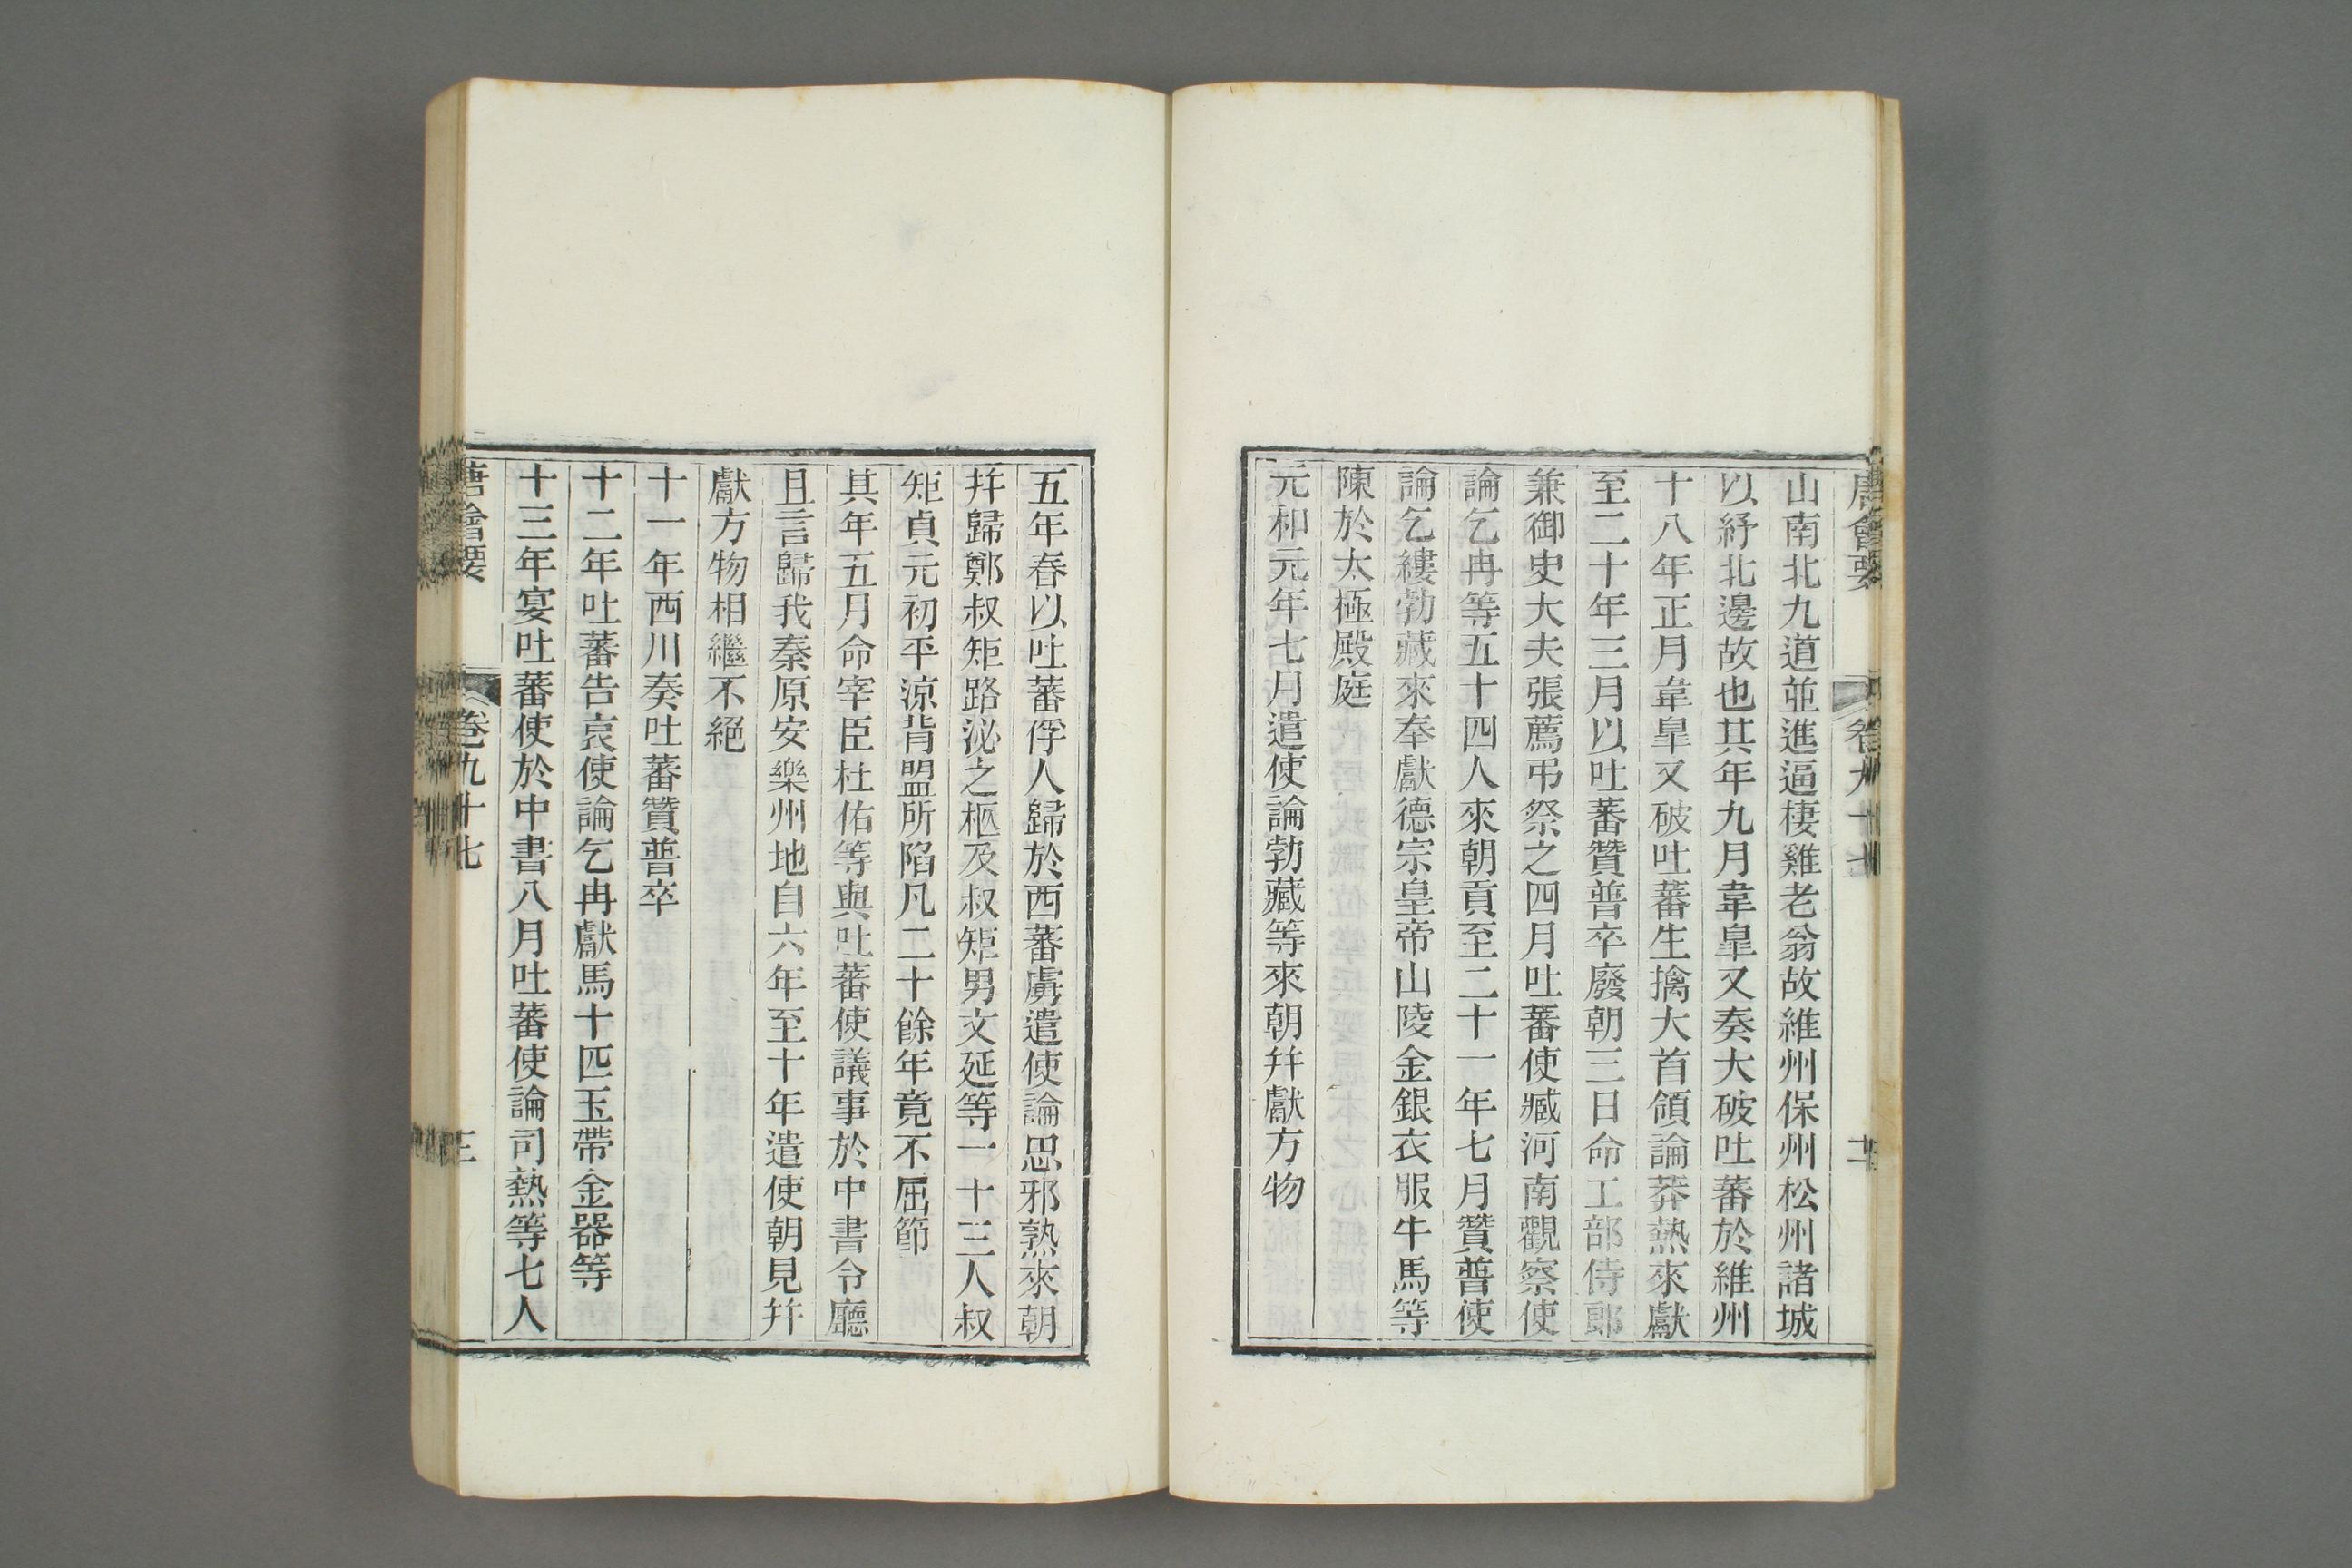 唐會要 卷九十七 二
山南北九道並進逼棲雞老翁故維州保州松州諸城
以紓北邊故也其年九月韋皐又奏大破吐蕃於維州
十八年正月韋皐又破吐蕃生擒大首領論莽熱來獻
至二十年三月以吐蕃贊普卒廢朝三日命工部侍郎
兼御史大夫張薦弔祭之四月吐蕃使臧河南觀察使
論乞冉等五十四人來朝貢至二十一年七月贊普使
論乞縷勃藏來奉獻德宗皇帝山陵金銀衣服牛馬等
陳於太極殿庭
元和元年七月遣使論勃藏等來朝幷獻方物
五年春以吐蕃俘人歸於西蕃虜遣使論思邪熱來朝
幷歸鄭叔矩路泌之柩及叔矩男文延等一十三人叔
矩貞元初平涼背盟所陷凡二十餘年竟不屈節
其年五月命宰臣杜佑等與吐蕃使議事於中書令廳
且言歸我秦原安樂州地自六年至十年遣使朝見幷
獻方物相繼不絕
十一年西川奏吐蕃贊普卒
十二年吐蕃告哀使論乞冉獻馬十匹玉帶金器等
十三年宴吐蕃使於中書八月吐蕃使論司熱等七人
唐會要 卷九十七 三